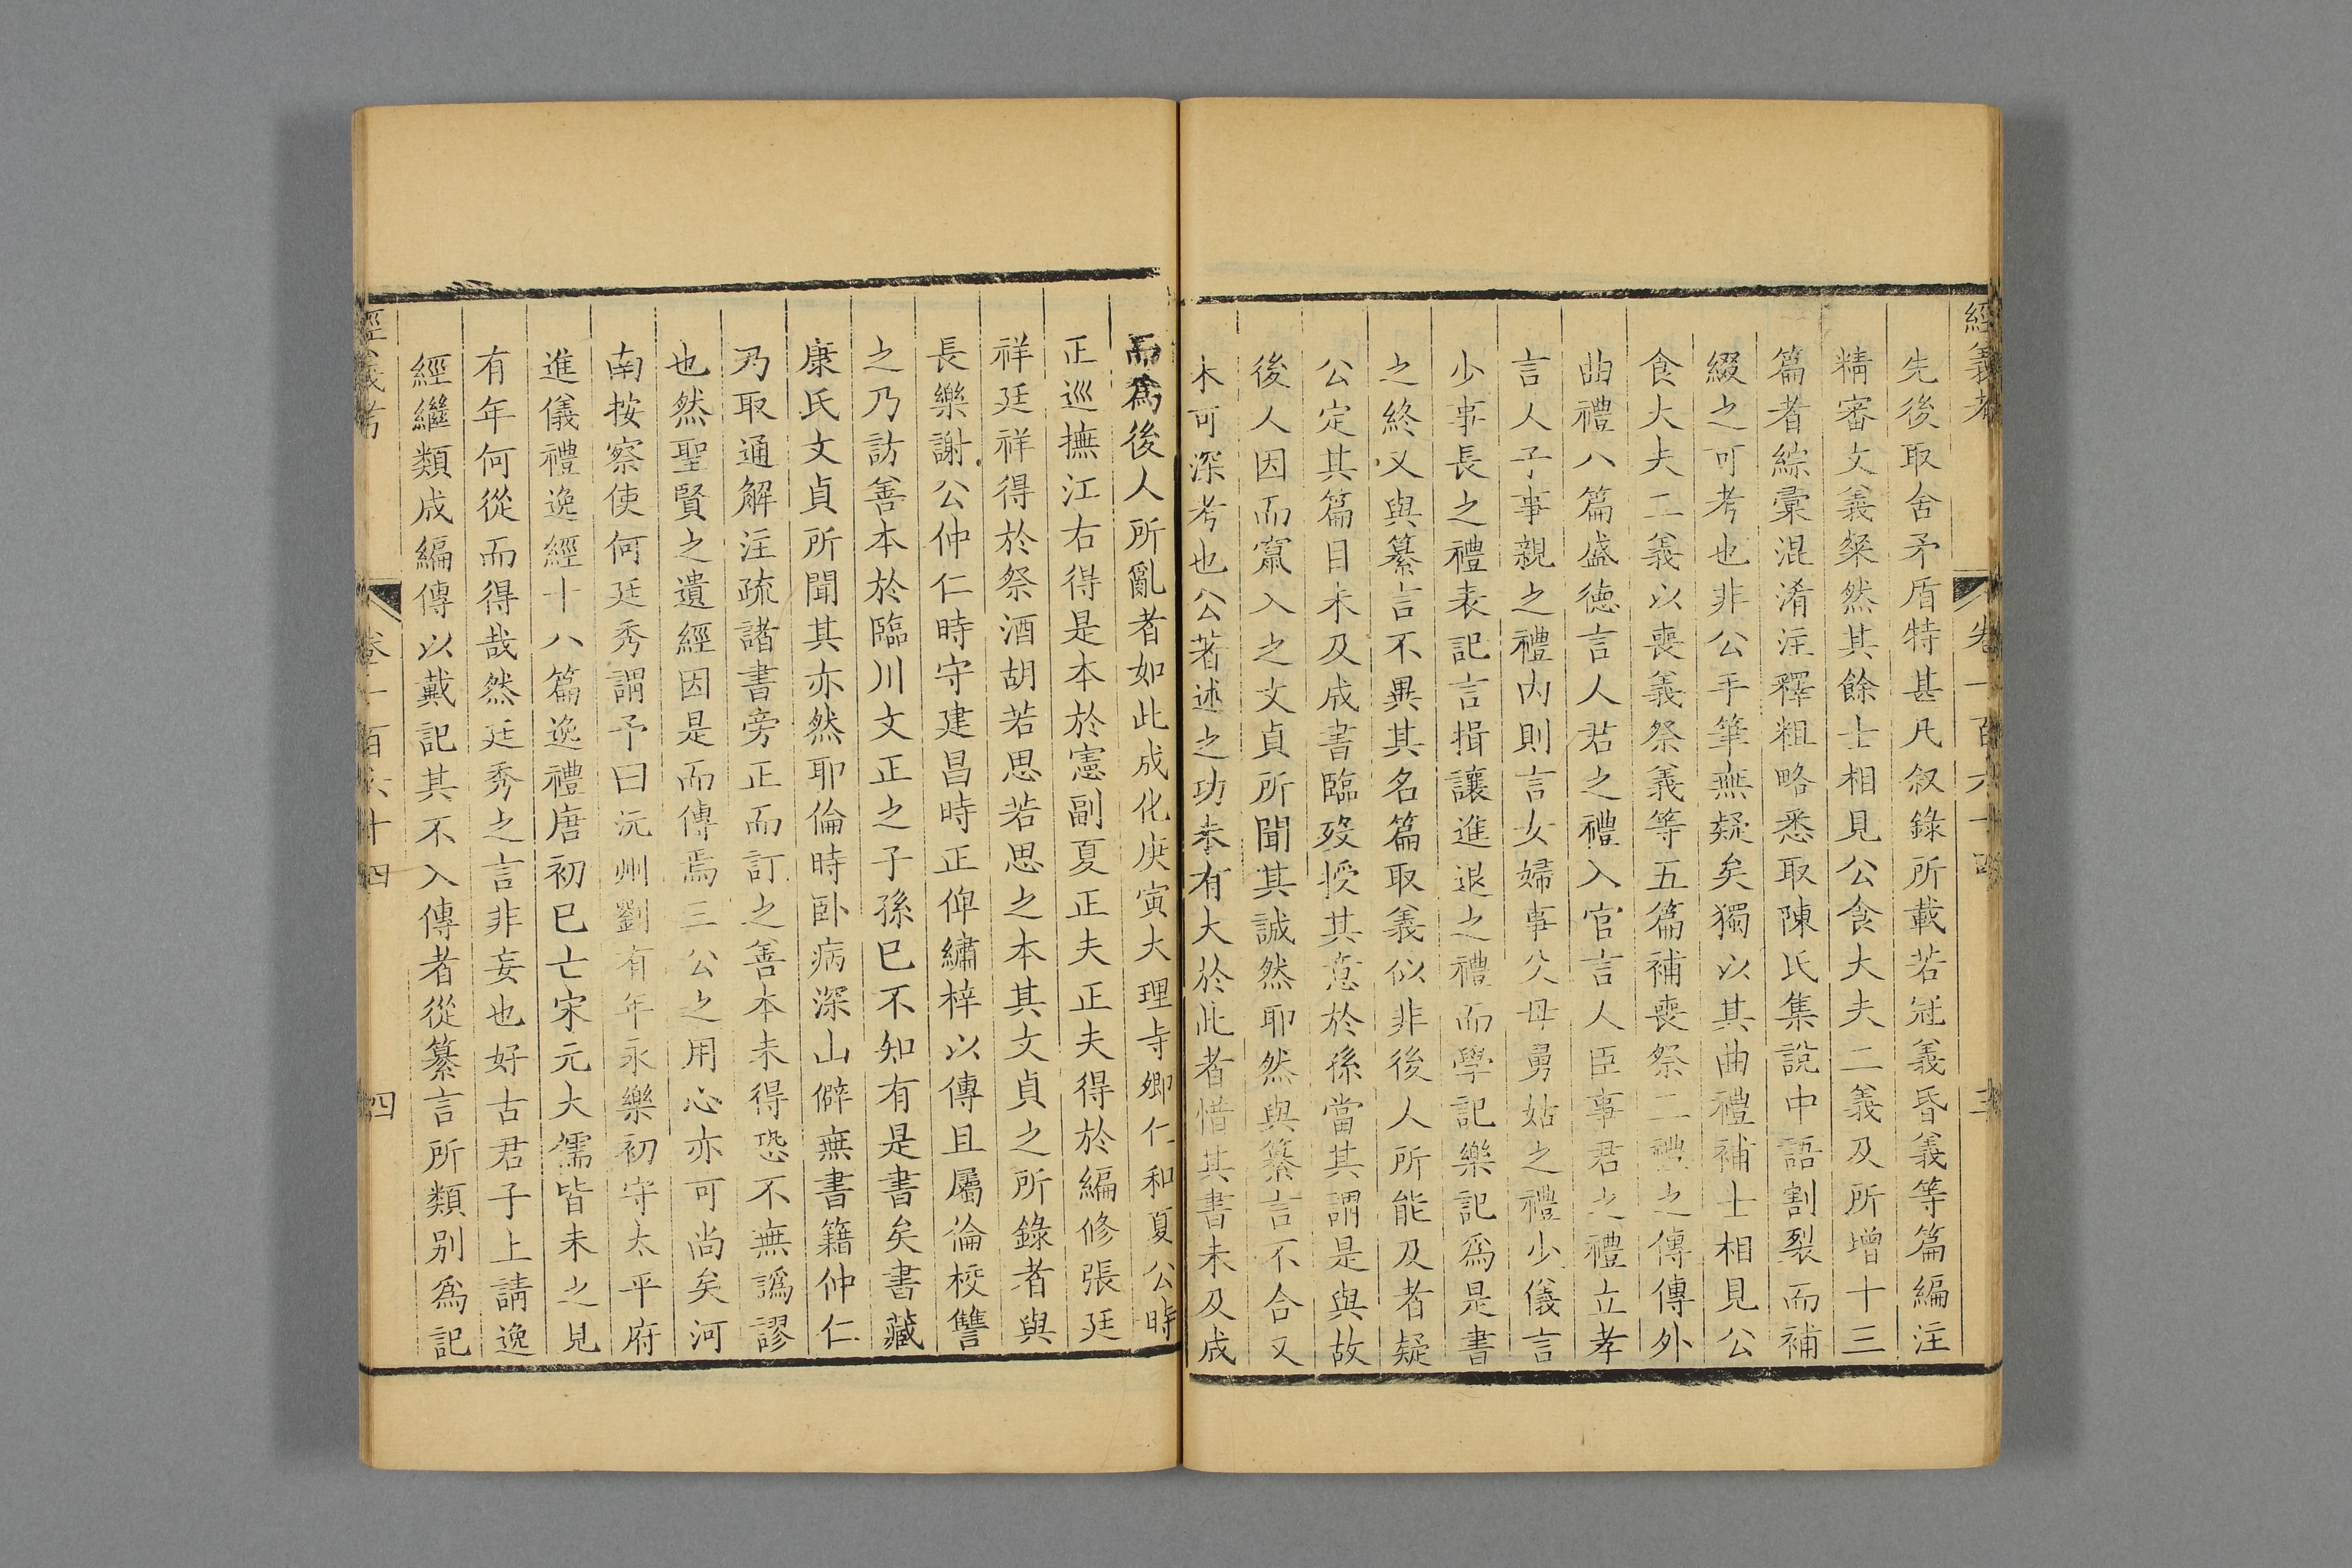 經義考 卷一百六十四 三
先後取舍矛盾特甚凡叙錄所載若冠義昏義等篇編注
精審文義粲然其餘士相見公食大夫二義及所增十三
篇者綜彙混淆注釋粗略悉取陳氏集說中語割裂而補
綴之可考也非公手筆無疑矣獨以其曲禮補士相見公
食大夫二義以喪義祭義等五篇補喪祭二禮之傳傳外
曲禮八篇盛德言人君之禮入官言人臣事君之禮立孝
言人子事親之禮內則言女婦事父母舅姑之禮少儀言
少事長之禮表記言揖讓進退之禮而學記樂記爲是書
之終又與纂言不異其名篇取義似非後人所能及者疑
公定其篇目未及成書臨歿授其意於孫當其謂是與故
後人因而竄入之文貞所聞其誠然耶然與纂言不合又
不可深考也公著述之功未有大於此者惜其書未及成
而爲後人所亂者如此成化庚寅大理寺卿仁和夏公時
正巡撫江右得是本於憲副夏正夫正夫得於編修張廷
祥廷祥得於祭酒胡若思若思之本其文貞之所錄者與
長樂謝公仲仁時守建昌時正俾繡梓以傳且屬倫校讐
之乃訪善本於臨川文正之子孫巳不知有是書矣書藏
康氏文貞所聞其亦然耶倫時卧病深山僻無書籍仲仁
乃取通解注疏諸書旁正而訂之善本未得恐不無譌謬
也然聖賢之遺經因是而傳焉三公之用心亦可尚矣河
南按察使何廷秀謂予曰沅州劉有年永樂初守太平府
進儀禮逸經十八篇逸禮唐初巳亡宋元大儒皆未之見
有年何從而得哉然廷秀之言非妄也好古君子上請逸
經繼類成編傳以戴記其不入傳者從纂言所類别爲記
經義考 卷一百六十四 四